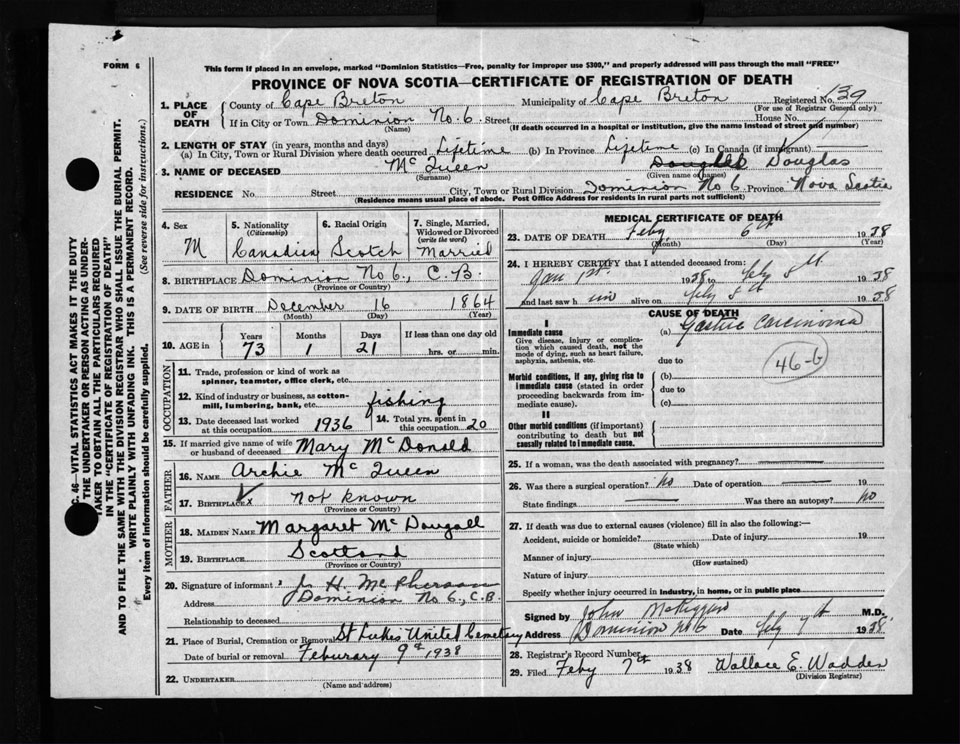 FORM 6
This form if placed in an envelope, marked "Dominion Statistics—Free, penalty for improper use $300," and properly addressed will pass through the mail "FREE"
PROVINCE OF NOVA SCOTIA—CERTIFICATE OF REGISTRATION OF DEATH
1. PLACE OF DEATH County of Cape Breton Municipality of Cape Breton Registered No. 139
(For use of Registrar General only)
If in City or Town Dominion No. 6 Street House No.
(Name) (If death occurred in a hospital or institution, give the name instead of street and number)
2. LENGTH OF STAY (in years, months and days)
(a) In City, Town or Rural Division where death occurred Lifetime (b) In Province Lifetime (c) In Canada (if immigrant)
3. NAME OF DECEASED McQueen Douglas
(Surname) (Given name or names)
RESIDENCE No. Street City, Town or Rural Division Dominion No 6 Province Nova Scotia
(Residence means usual place of abode. Post Office Address for residents in rural parts not sufficient)
4. Sex M
5. Nationality (Citizenship) Canadian
6. Racial Origin Scotch
7. Single, Married, Widowed or Divorced (write the word) Married
8. BIRTHPLACE Dominion No 6., C.B.
(Province or Country)
9. DATE OF BIRTH December 16 1864
(Month) (Day) (Year)
10. AGE in Years 73 Months 1 Days 21 If less than one day old hrs. or min.
OCCUPATION
11. Trade, profession or kind of work as spinner, teamster, office clerk, etc.
12. Kind of industry or business, as cotton-mill, lumbering, bank, etc. fishing
13. Date deceased last worked at this occupation 1936
14. Total yrs. spent in this occupation 20
15. If married give name of wife or husband of deceased Mary McDonald
FATHER
16. NAME Archie McQueen
17. BIRTHPLACE x Not known
MOTHER
18. MAIDEN NAME Margaret McDougall
19. BIRTHPLACE Scotland
(Province or Country)
20. Signature of informant H. McPherson
Address Dominion No 6., C.B.
Relationship to deceased
21. Place of Burial, Cremation or Removal St Lukes United Cemetery
Date of burial or removal Feburary 9th 1938
22. UNDERTAKER
(Name and address)
MEDICAL CERTIFICATE OF DEATH
23. DATE OF DEATH Feby 6th 1938
(Month) (Day) (Year)
24. I HEREBY CERTIFY that I attended deceased from:
Jan 1st. 1938 to Feby 5th 1938
and last saw him alive on Feby 5th 1938
CAUSE OF DEATH
I
Immediate cause (a) Gastric Carcinoma
Give disease, injury or complication which caused death, not the mode of dying, such as heart failure, asphyxia, asthenia, etc.
due to
46-b
Morbid conditions, if any, giving rise to immediate cause (stated in order proceeding backwards from immediate cause).
(b)
due to
(c)
II
Other morbid conditions (if important) contributing to death but not causally related to immediate cause.
25. If a woman, was the death associated with pregnancy?
26. Was there a surgical operation? No Date of operation 19
State findings Was there an autopsy? No
27. If death was due to external causes (violence) fill in also the following:—
Accident, suicide or homicide? Date of injury 19
(State which)
Manner of injury
(How sustained)
Nature of injury
Specify whether injury occurred in industry, in home, or in public place
Signed by John M.D.
Address Dominion No 6 Date Feby 7th 1938
28. Registrar's Record Number
29. Filed Feby 7th 1938 Wallace E. Wadden
(Division Registrar)
C. 46—VITAL STATISTICS ACT MAKES IT THE DUTY
THE UNDERTAKER OR PERSON ACTING AS UNDER-
TAKER TO OBTAIN ALL THE PARTICULARS REQUIRED
IN THE "CERTIFICATE OF REGISTRATION OF DEATH"
AND TO FILE THE SAME WITH THE DIVISION REGISTRAR WHO SHALL ISSUE THE BURIAL PERMIT.
WRITE PLAINLY WITH UNFADING INK. THIS IS A PERMANENT RECORD.
Every item of information should be carefully supplied. (See reverse side for instructions.)